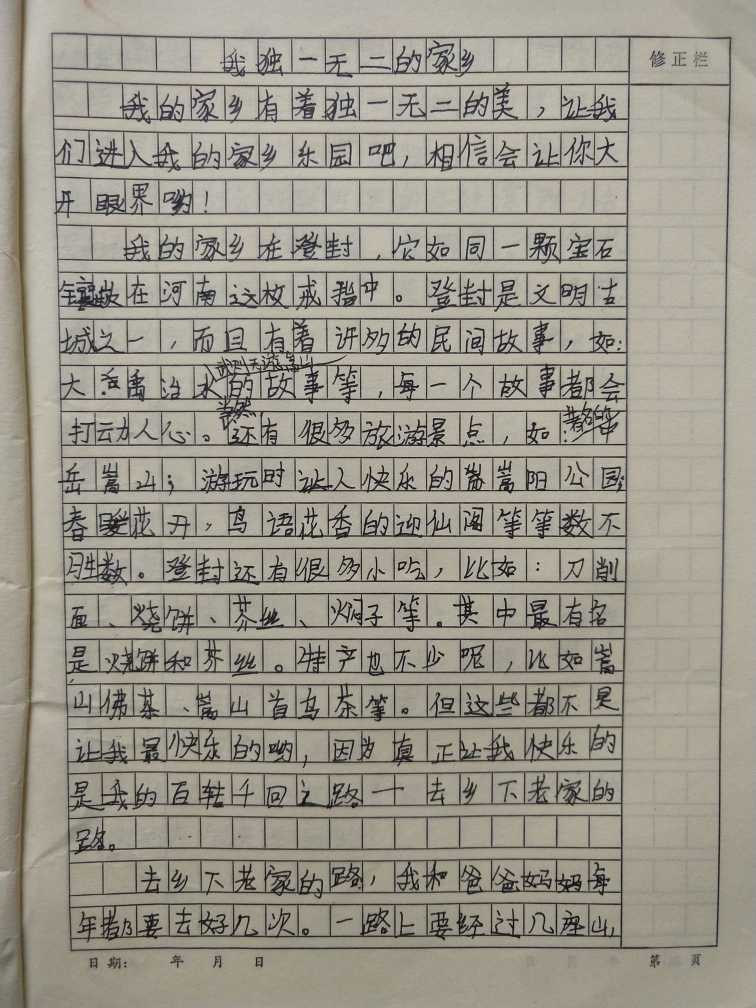 我独一无二的家乡
修正栏
我的家乡有着独一无二的美，让我
们进入我的家乡乐园吧，相信会让你大
开眼界哟！
我的家乡在登封，它如同一颗宝石
镶嵌在河南这枚戒指中。登封是文明古
城之一，而且有着许多的民间故事，如：
武则天游嵩山
大禹治水的故事等，每一个故事都会
当然
打动人心。还有很多旅游景点，如
岳嵩山；游玩时让人快乐的嵩阳公园；
春暖花开，鸟语花香的迎仙阁等等数不
胜数。登封还有很多小吃，比如：刀削
面、烧饼、芥丝、焖子等。其中最有名
是烧饼和芥丝。特产也不少呢，比如嵩
山佛茶、嵩山首乌茶等。但这些都不是
让我最快乐的哟，因为真正让我快乐的
是我的百转千回之路—去乡下老家的
路。
去乡下老家的路，我和爸爸妈妈每
年都要去好几次。一路上要经过几座山，
日期： 年 月 日 第 页